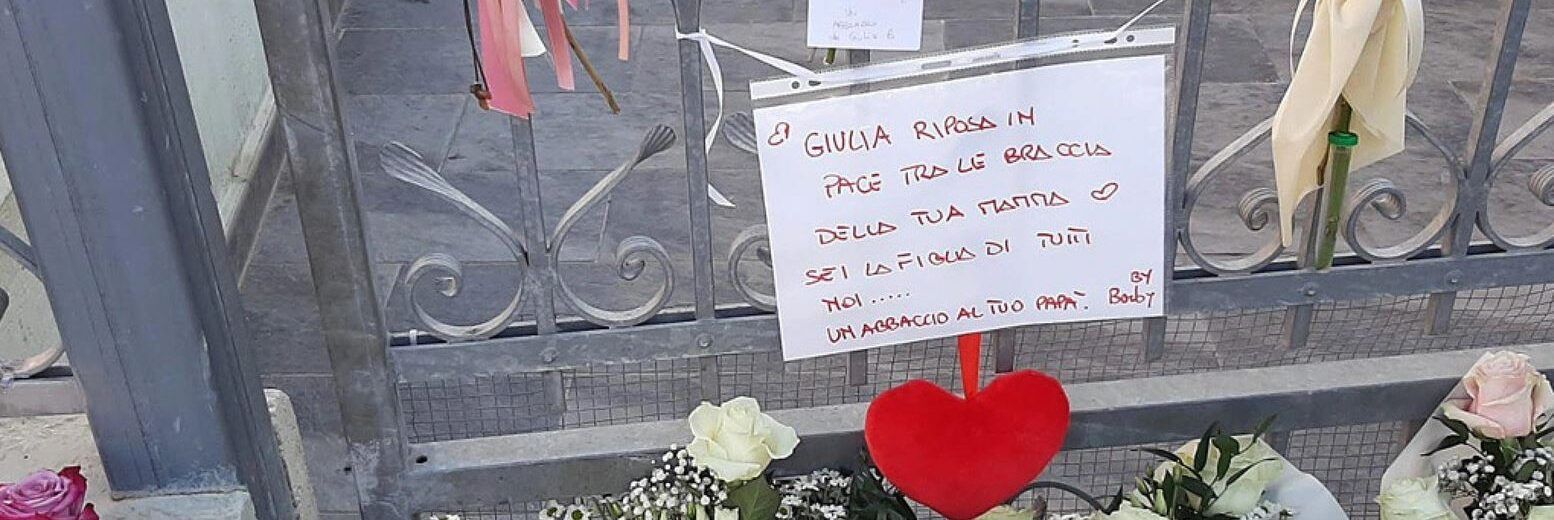 UN
ABBRACCIO
GIULIA RIPOSA IN
PACE TRA LE BRACCIA
DELLA TUA MAMMA
SEI LA FIGLIA DI TUTTI
NOI.....
UN ABBACCIO AL TUO PAPA'.
BY
Bonby